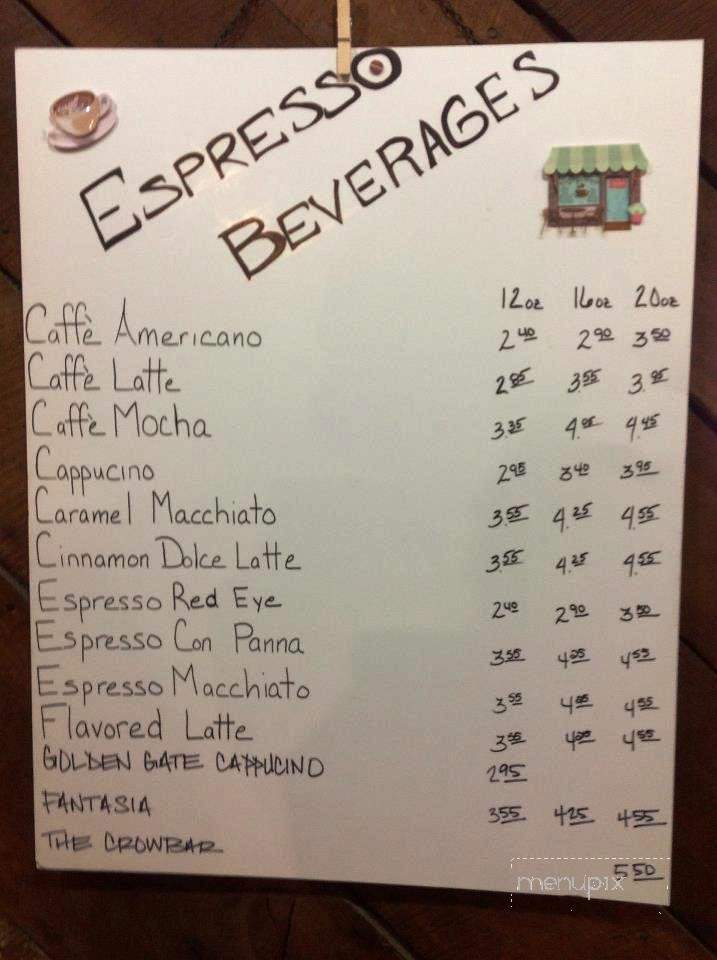 ESPRESSO
BEVERAGES
12oz 16oz 20oz
Caffè Americano 2 40 2 90 3 50
Caffè Latte 2 85 3.55 3. 95
Caffè Mocha 3.35 4. 4 45
Cappucino 2 95 3 40 3 95
Caramel Macchiato 3.55 4.25 4.55
Cinnamon Dolce Latte 3.55 4.25 4.55
Espresso Red Eye 2 40 2 90 3 50
Espresso Con Panna 3 55 4 25 4 55
Espresso Macchiato 3 55 4 4 55
Flavored Latte 3 55 4 4 55
GOLDEN GATE CAPPUCINO 2 95
FANTASIA 3 55 4 25 4 55
THE CROWBAR 5 50
menupix